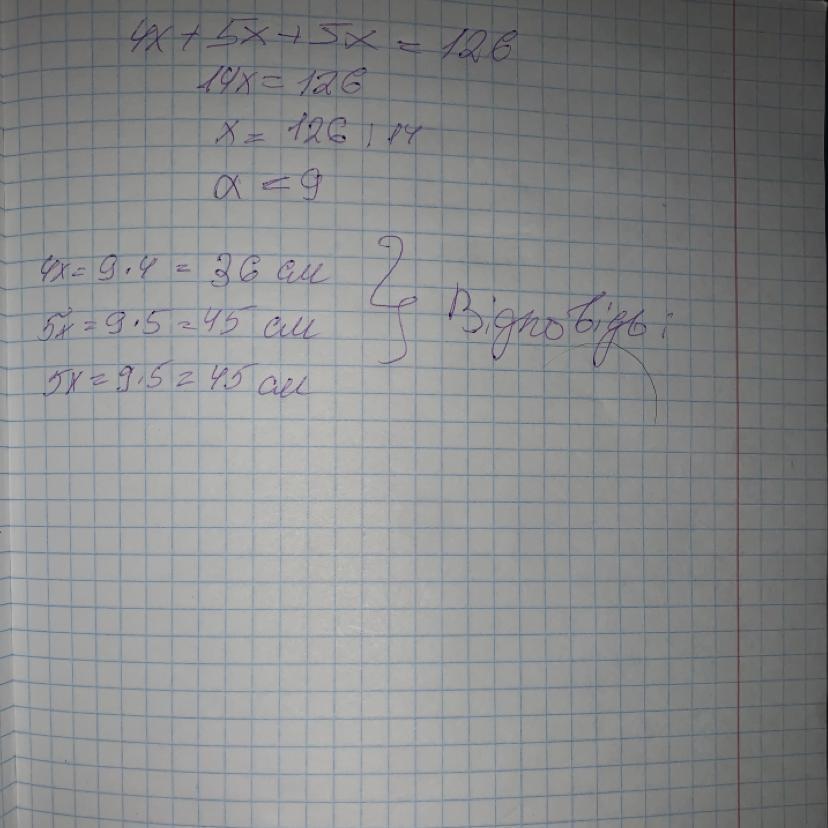 4x + 5x + 5x = 126
14x = 126
x = 126 : 14
x = 9
4x = 9 · 4 = 36 см
5x = 9 · 5 = 45 см
5x = 9 · 5 = 45 см
Відповідь: